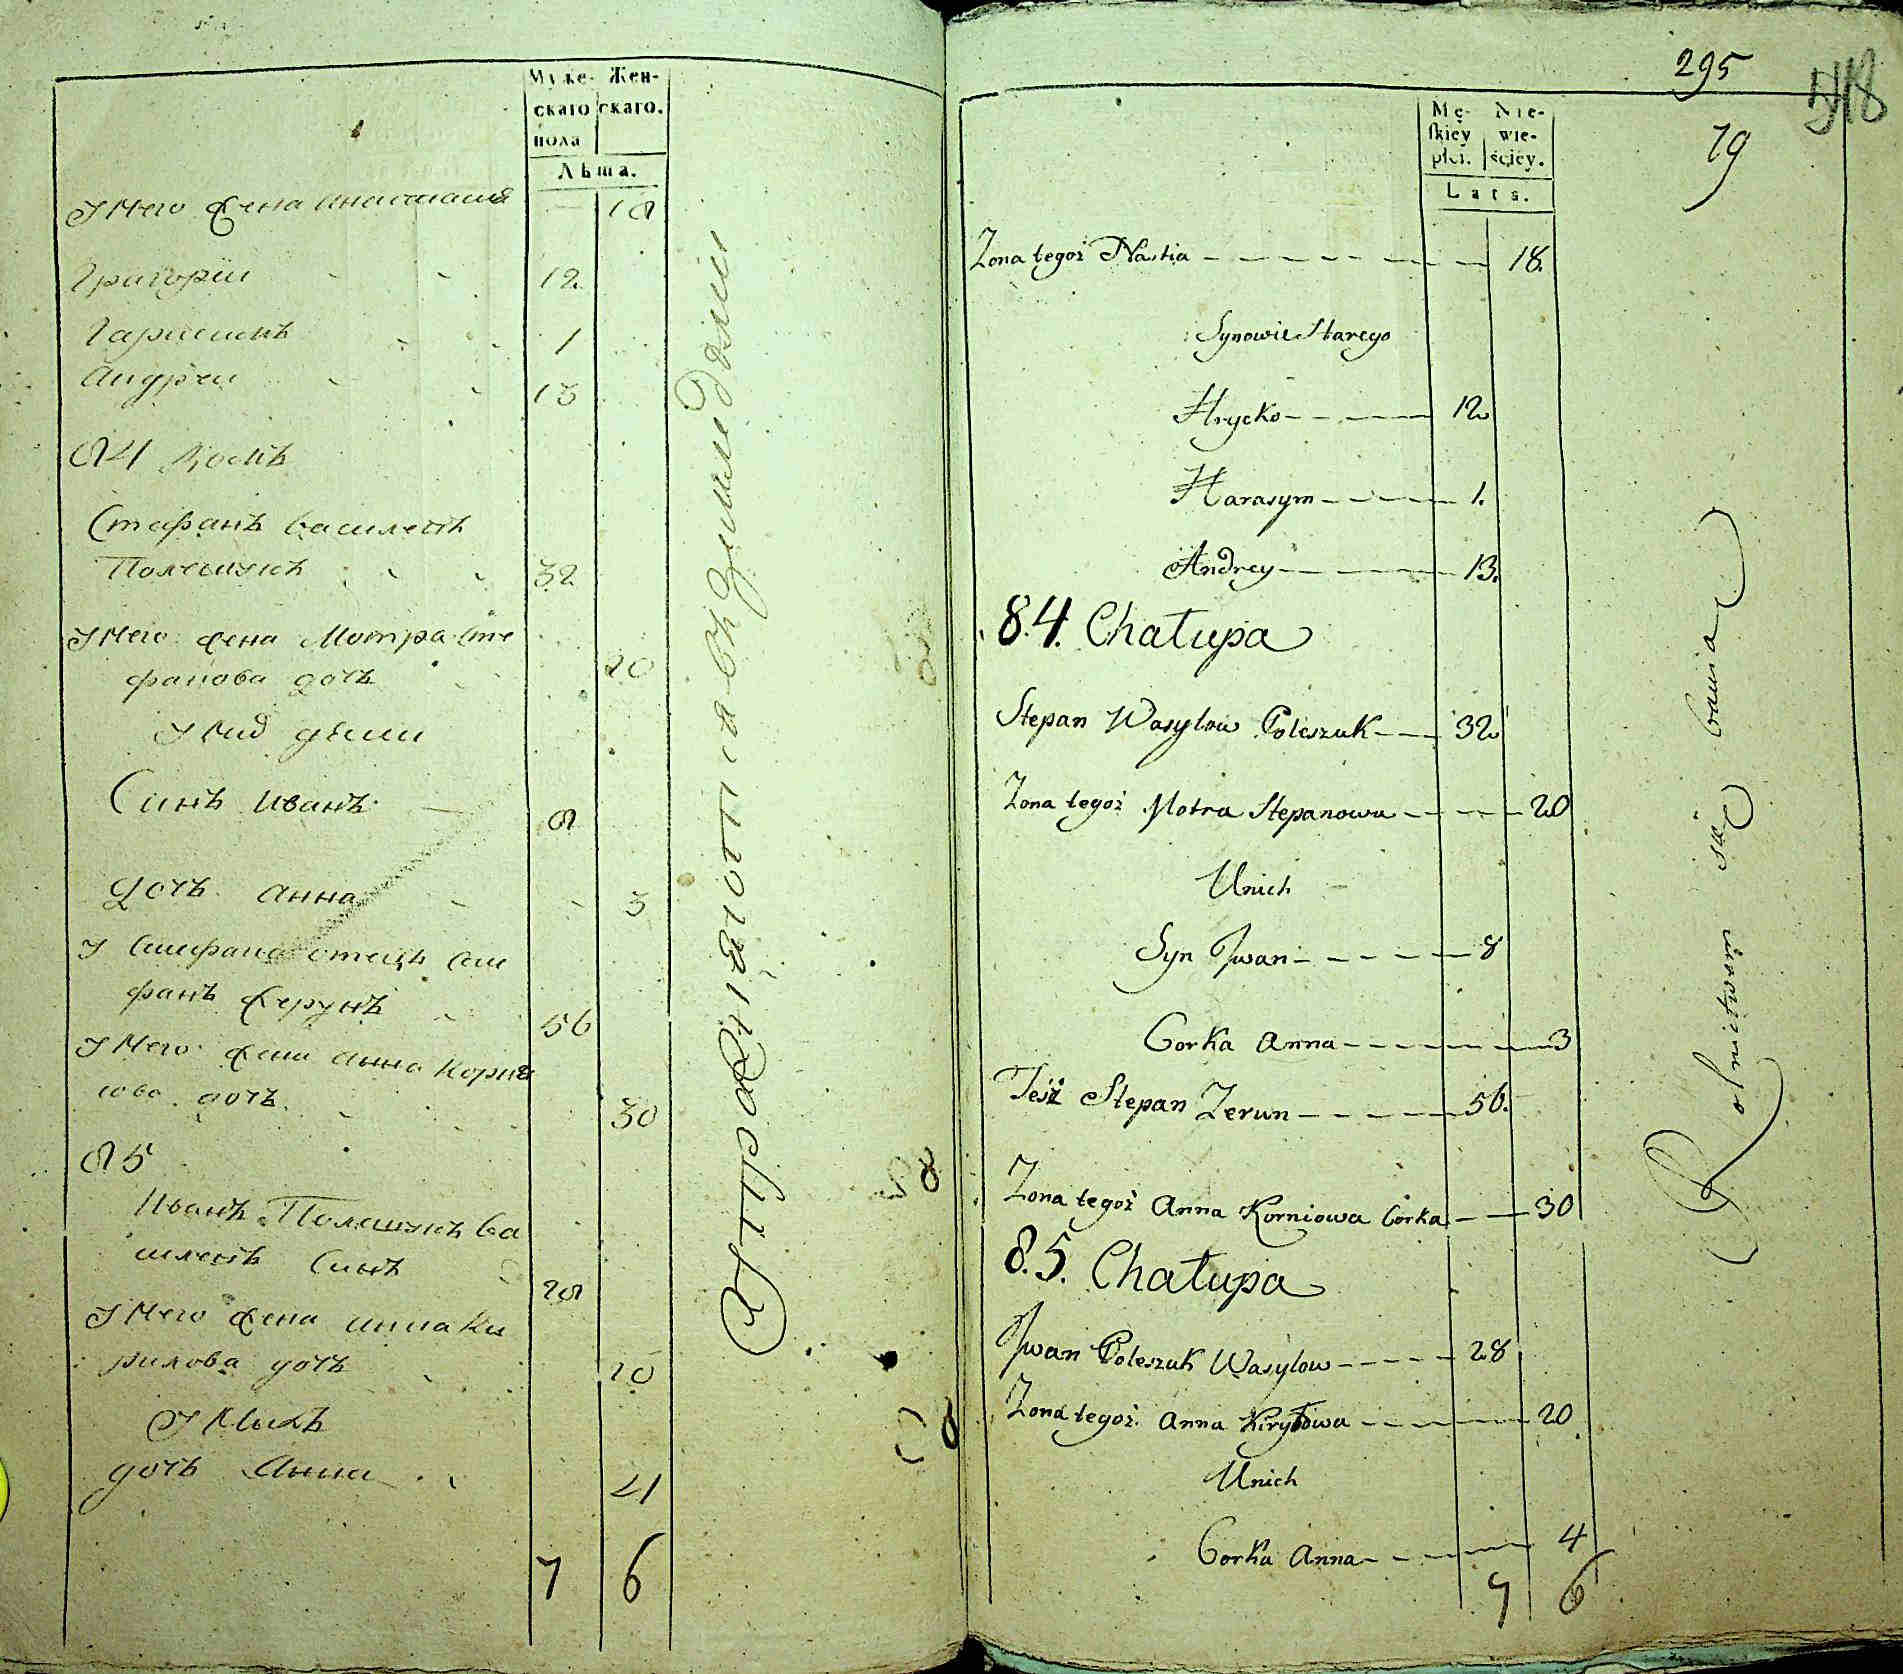 Муже- Жен-
скаго скаго.
пола
Лѣта.
У него жена Анастасия — 18
Григории 12
Гарасимъ 1
Андреи 13
84 Домъ
Стефанъ Василевъ
Полешукъ 32
У него жена Мотра Сте
фанова дочь 20
У них дѣти
Синъ Иванъ 8
Дочь Анна 3
У Стефана отецъ Сте
фанъ Жерунъ 56
У него жена Анна Корнѣ
ова дочь 30
85
Иванъ Полешукъ Ва
силевъ Синъ 28
У него жена Анна Ки
рилова дочь 20
У них
дочь Анна 4
7 6
295
518
79
Mę- Nie-
skiey wie-
płci. ściey.
Lats.
Zona tegoż Nastia 18.
Synowie Starego
Hrycko 12
Harasym 1.
Andrey 13.
84. Chałupa
Stepan Wasylow Poleszuk 32
Zona tegoż Motra Stepanowa 20
Unich
Syn Jwan 8
Corka Anna 3
Teść Stepan Zerun 56.
Zona tegoż Anna Korniowa Corka 30
85. Chałupa
Jwan Poleszuk Wasylow 28
Zona tegoż Anna Kiryłowa 20
Unich
Corka Anna 4
7 6
Rolnictwem się bawia